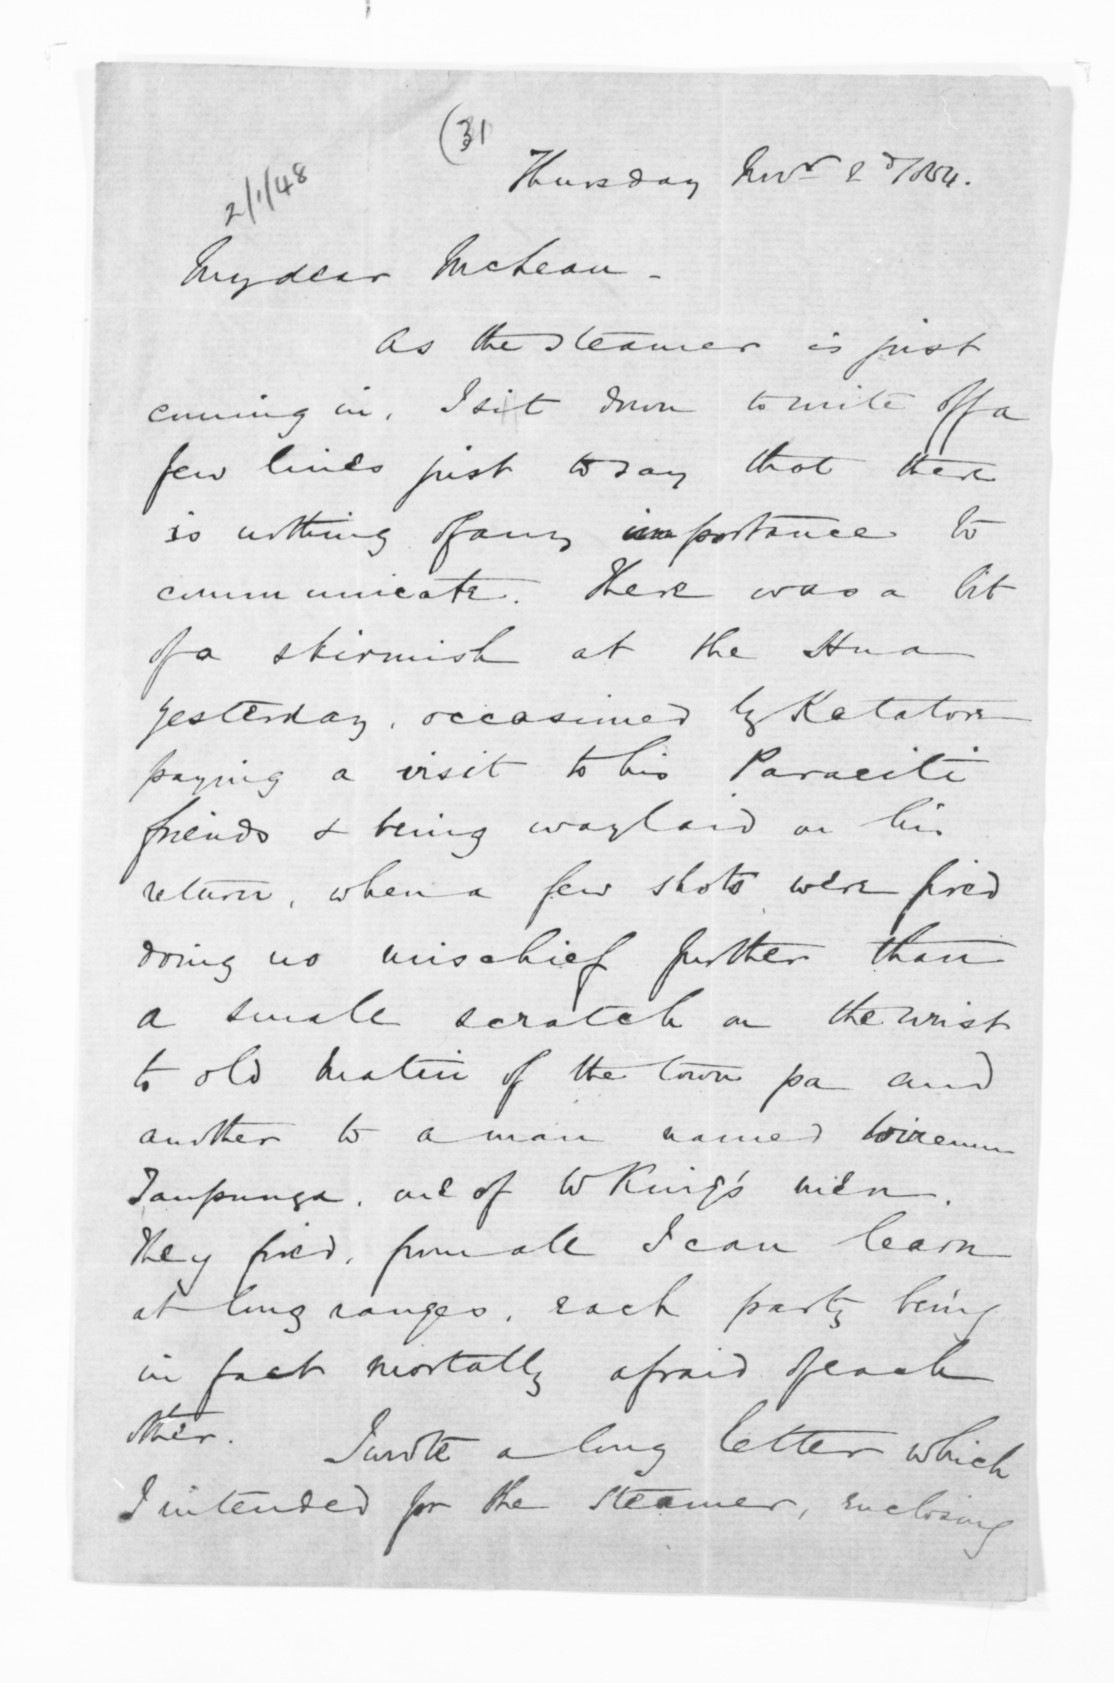 (31
2/1/48
Thursday Novr 2d/1854.
My dear McLean -
As the steamer is just
coming in, I sit down to write off a
few lines just to say that there
is nothing of any importance to
communicate. There was a bit
of a skirmish at the Hua
yesterday, occasioned by Katatore
paying a visit to his Paraciti
friends & being waylaid on his
return, when a few shots were fired
doing no mischief further than
a small scratch on the wrist
to old Matiu of the town pa and
another to a man named Wiremu
Taupunga, one of W King's men.
They fired, from all I can learn
at long ranges, each party being
in fact mortally afraid of each
other. I wrote a long letter which
I intended for the steamer, enclosing